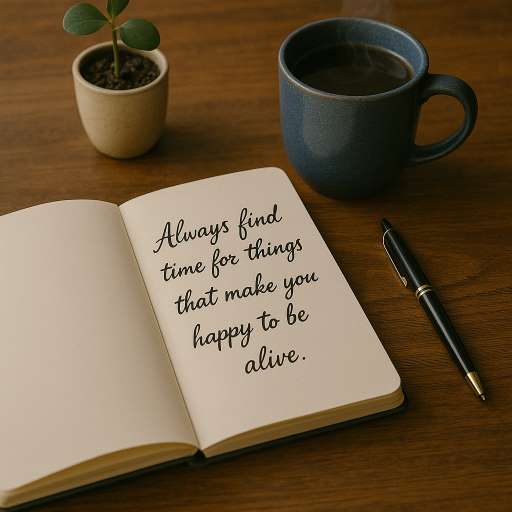 Always find
time for things
that make you
happy to be
alive.